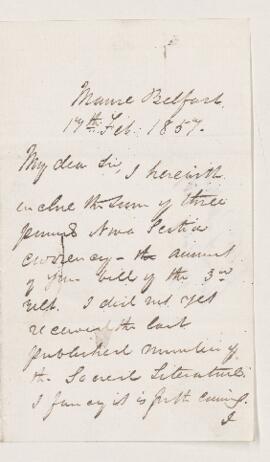 Manse Belfast
17th Feb. 1857.
My dear Sir, I herewith
enclose the sum of three
pounds Nova Scotia
currency - the amount
of your bill of the 3rd
I did not yet
receive the last
published number of
the Sacred Literature.
I fancy it is forth coming.
I